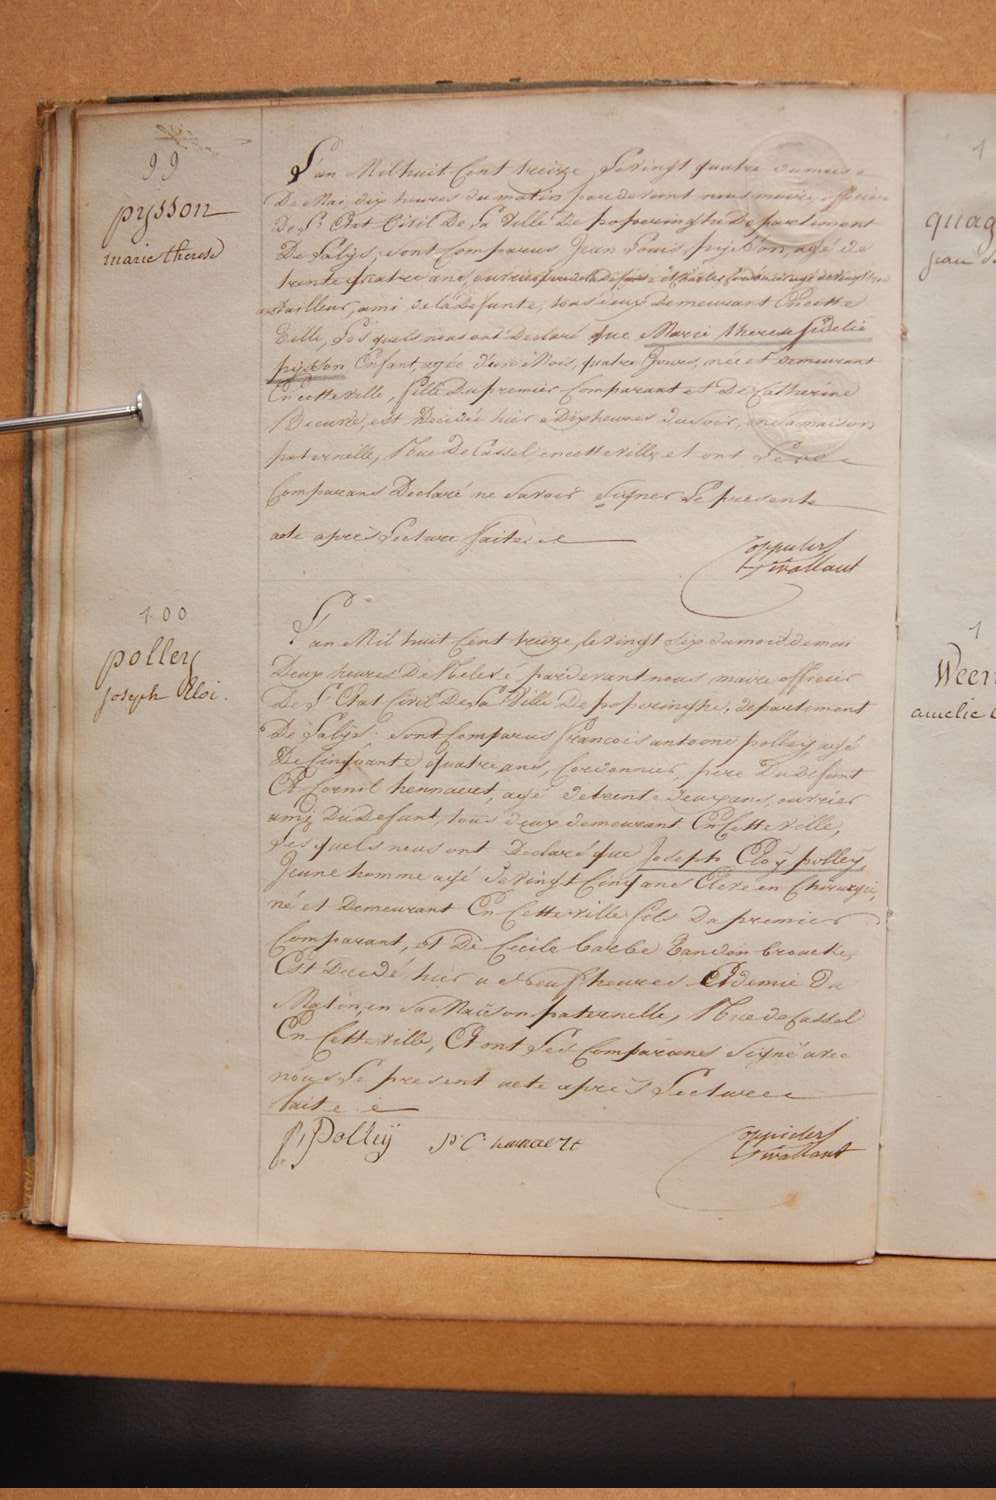 99
pysson
marie therese
L'an Mil huit-Cent treize, Le vingt quatre du mois
De Mai dix heures du matin pardevant nous maire officier
De L'Etat Civil De La Ville De poperinghe Departement
De La Lys, sont Comparus Jean Louis pysson, agé de
trente quatre ans, ouvrier pere de la Defunte et
tailleur, ami de la Defunte, tous deux Demeurant En cette
Ville, Les quels nous ont Declaré que Marie therese fidelie
pysson Enfant, agée d'un Mois, quatre Jours, née et demeurant
En cette ville, fille Du premier Comparant et De Catherine
est Decedée hier a Dix heures du soir, en sa maison
paternelle, Rue De Cassel en cette ville, et ont Les
Comparans Declaré ne Savoir Signer Le presente
acte aprés Lecture faite
100
polley
Joseph Eloi.
L'an Mil huit-Cent treize, le vingt Six du mois de mai
Deux heures De Relevé pardevant nous maire officier
De L'Etat Civil De La Ville De poperinghe, departement
De La Lys. Sont Comparus françois antoine polley, agé
De Cinquante quatre ans, Cordonnier, pere Du Defunt
Et Cornil hennaert, agé de trente deux ans, ouvrier
ami Du Defunt, tous deux demeurant En Cette Ville,
Les quels nous ont Declaré que Joseph Eloÿ polleÿ,
Jeune homme agé de vingt Cinq ans Eleve en Chirurgie,
né et Demeurant En Cette ville fils Du premier
Comparant, et De Cecile barbe Vandenbroucke,
Est Decedé hier a neuf heures Et demie Du
Matin, en sa Maison paternelle, Rue de Cassel
En Cette ville, Et ont Les Comparans Signé avec
nous Le present acte aprés Lecture
faite
Polleÿ P: C: hennaert
quag
Jean
Weer
amelie